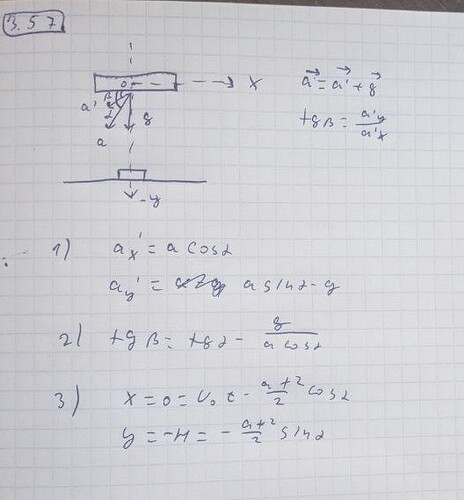 3.57
0 X
a⃗' = a⃗' + g⃗
a' β α g
a
tgβ = a'y / a'x
-y
1) ax' = a cosα
ay' = a sinα - g
2) tgβ = tgα - g / (a cosα)
3) X = 0 = V₀t - at²/2 cosα
y = -H = - at²/2 sinα